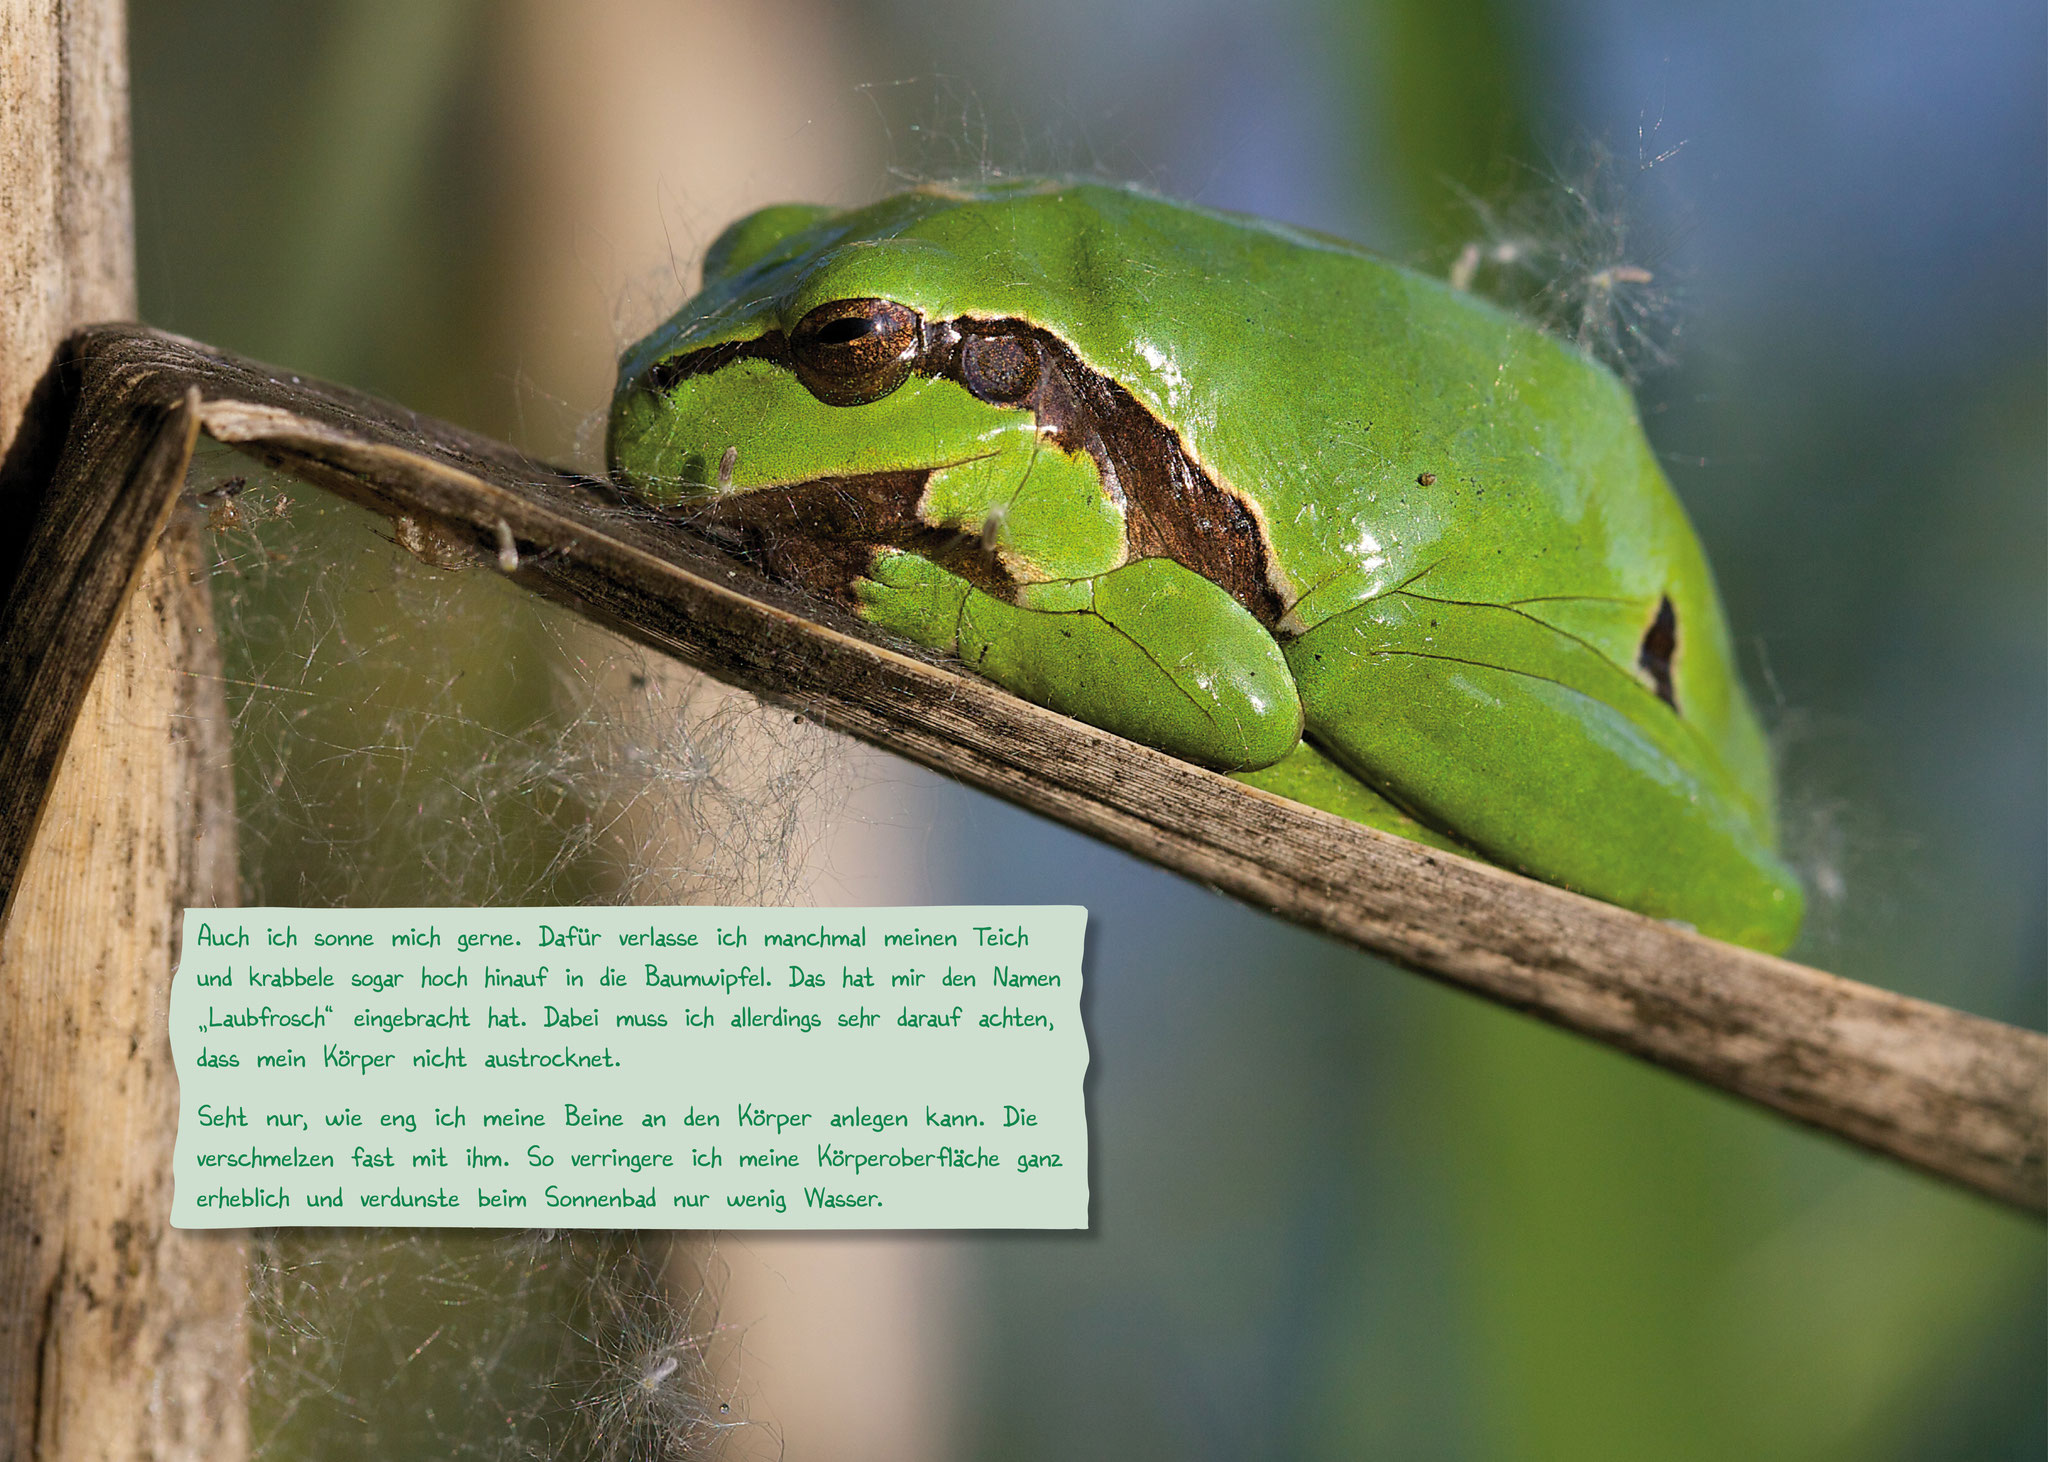 Auch ich sonne mich gerne. Dafür verlasse ich manchmal meinen Teich
und krabbele sogar hoch hinauf in die Baumwipfel. Das hat mir den Namen
„Laubfrosch“ eingebracht hat. Dabei muss ich allerdings sehr darauf achten,
dass mein Körper nicht austrocknet.
Seht nur, wie eng ich meine Beine an den Körper anlegen kann. Die
verschmelzen fast mit ihm. So verringere ich meine Körperoberfläche ganz
erheblich und verdunste beim Sonnenbad nur wenig Wasser.